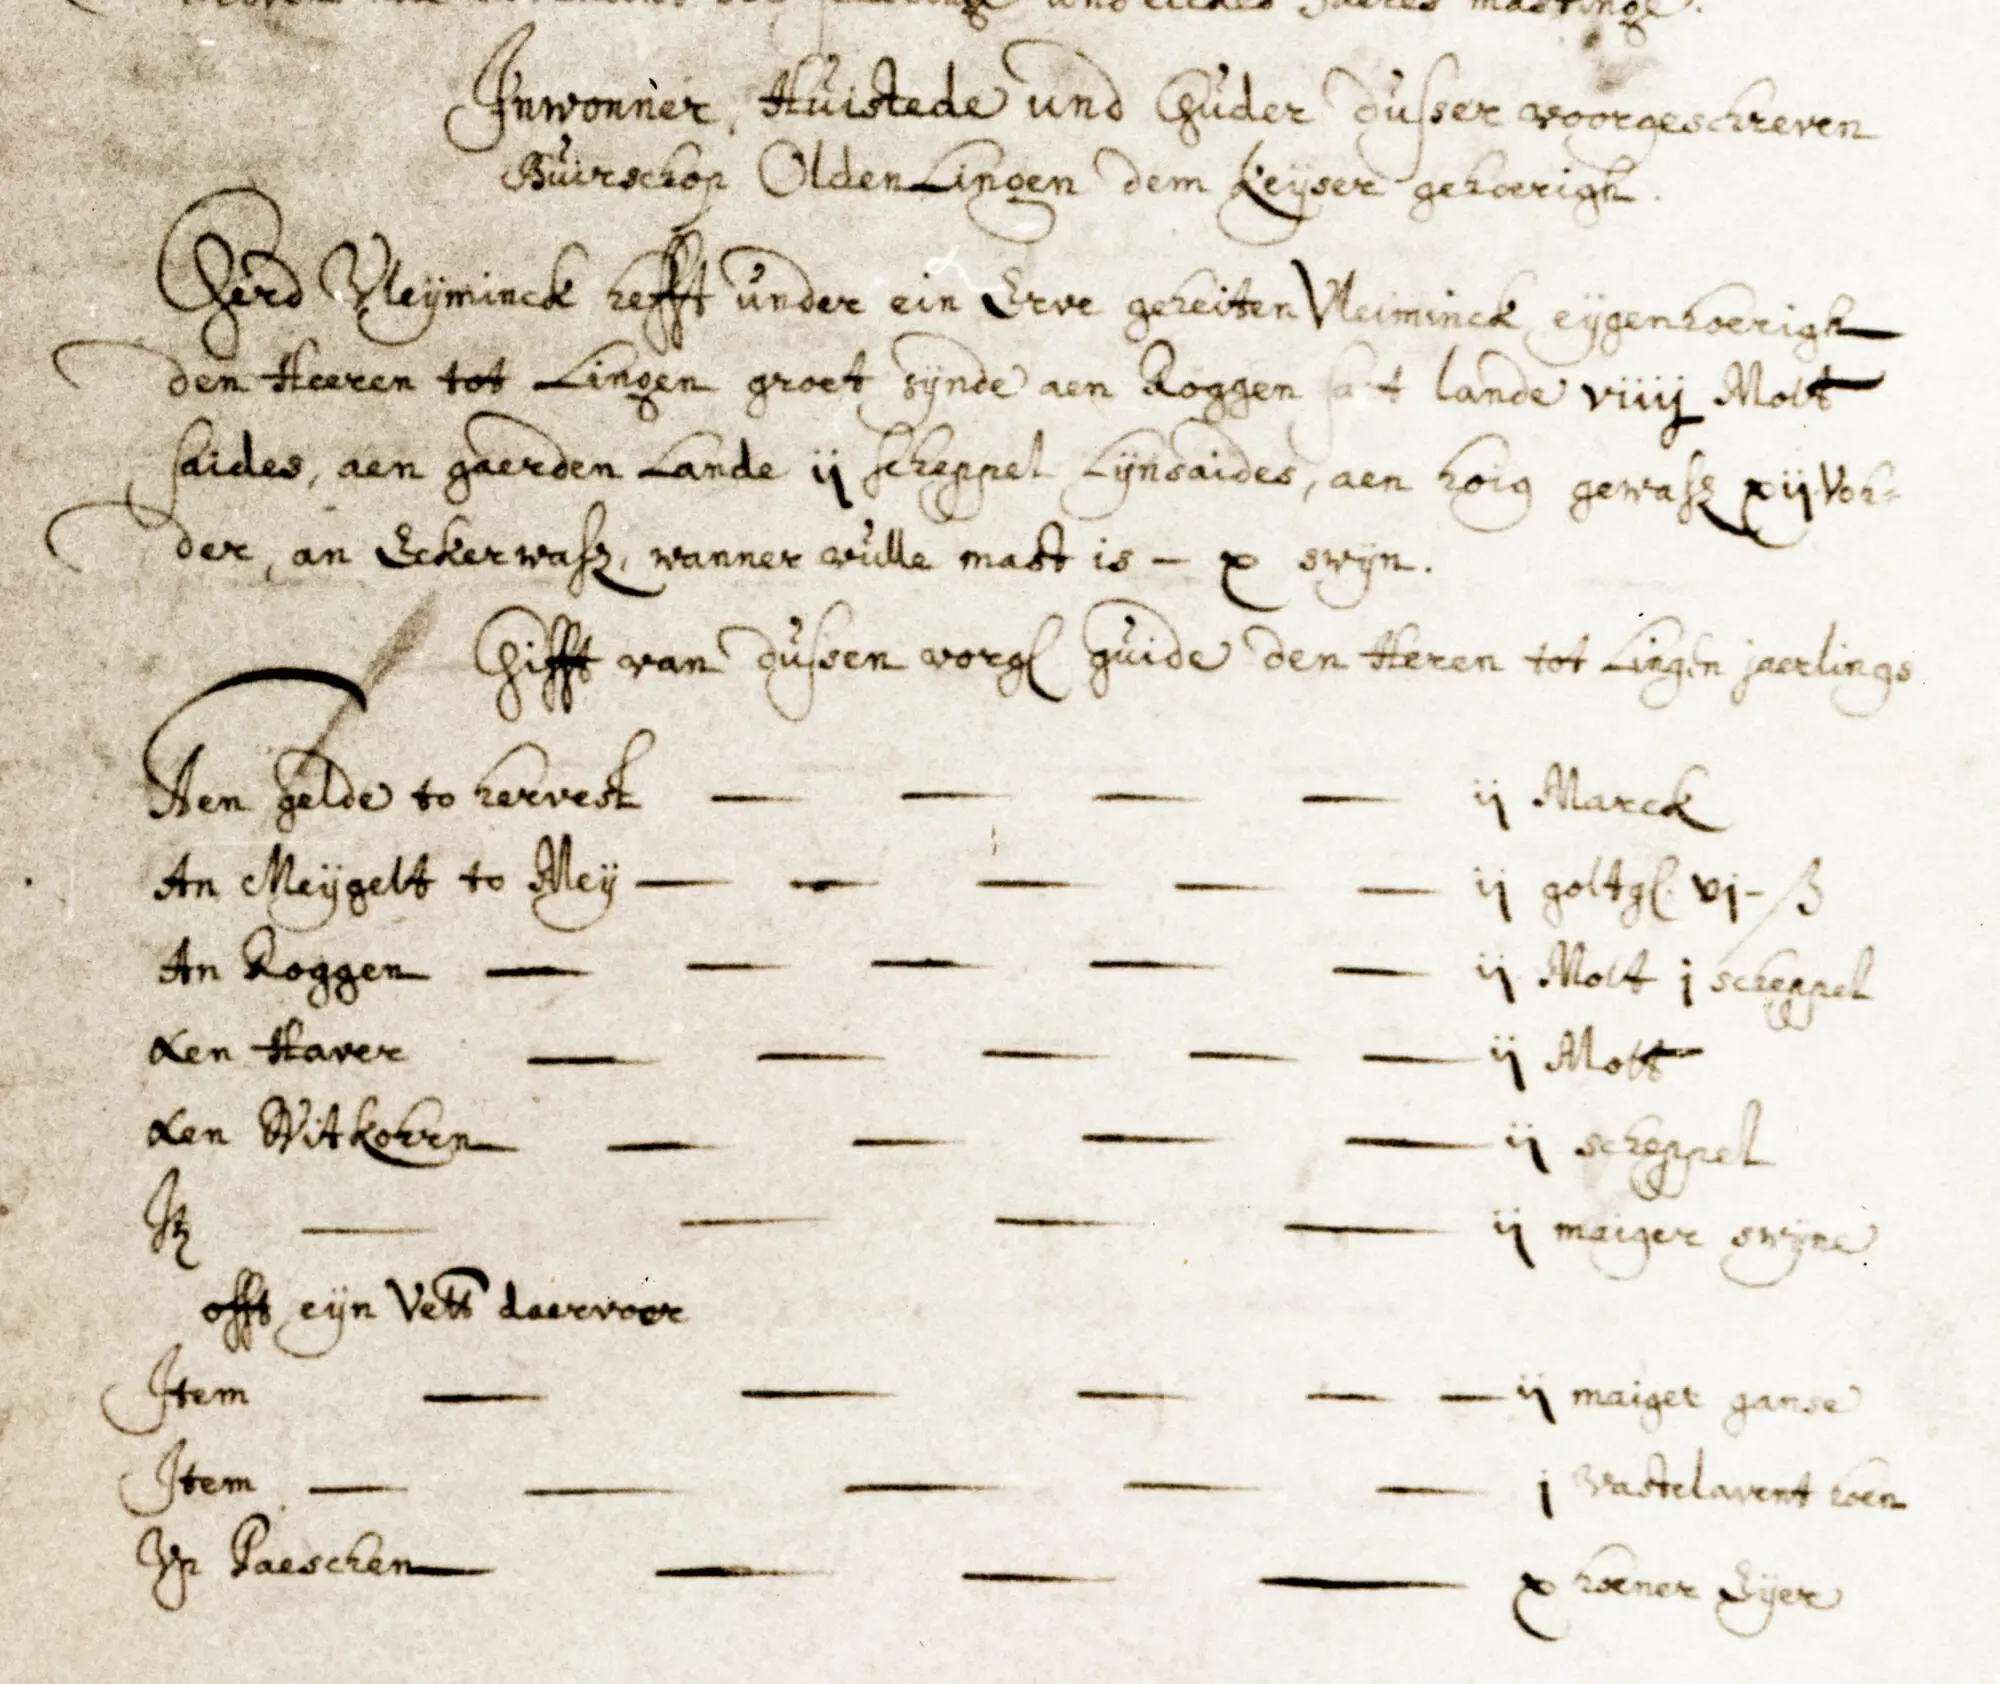 Inwonner, Huistede und Guder dusser voorgeschreven
Buirschop OldenLingen dem Keijser gehoerigh.
Gerd Vleijminck hefft under ein Erve geheiten Vleiminck eijgenhoerigh
den Heeren tot Lingen groet sijnde aen Roggen lande viiij Molt
saides, aen gaerden Lande ij scheppel Lijnsaides, aen hoig gewasz xij Voh-
der, an Eckerwasz, wanner vulle mast is - x swijn.
Gifft van dussen vorgl guide den Heren tot Lingen jaerlings
Aen gelde to hervest — — — — ij Marck
An Meijgelt to Meij — — — — — ij goltgl. vj - ß
An Roggen — — — — — ij Molt j scheppel
Aen Haver — — — — — ij Molt
Aen Witkohrn — — — — ij scheppel
It — — — — ij maiger swijne
offt eijn Vett daervoer
Item — — — — — ij maiger ganse
Item — — — — — j vastelavent hoen
Up Paeschen — — — — x hoener Eijer